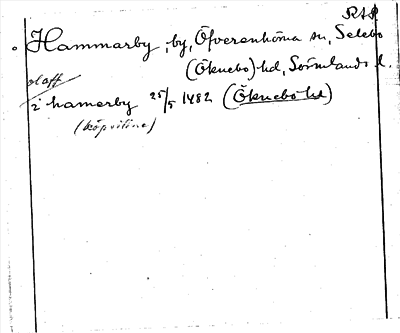 RAP
Hammarby, by, Öfverenhörna sn, Selebo
(Öknebo) hd, Sörmlands l.
olaff
i hamerby 25/5 1482 (Öknebo hd)
(köpvitne)